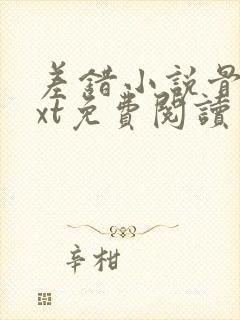 差錯小説最
xt免費閱讀
辛柑